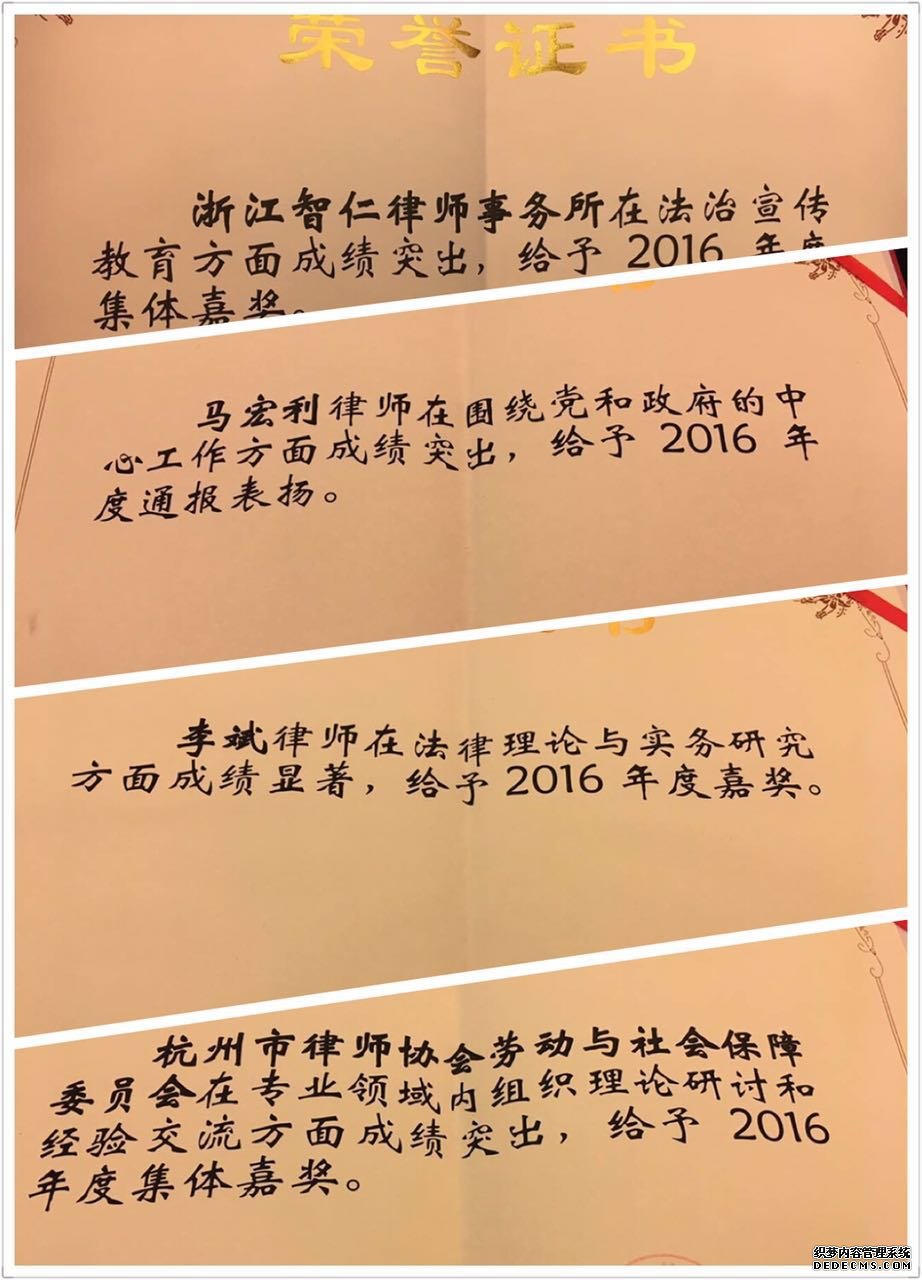 荣誉证书
浙江智仁律师事务所在法治宣传
教育方面成绩突出，给予 2016 年度
集体嘉奖。
马宏利律师在围绕党和政府的中
心工作方面成绩突出，给予 2016 年
度通报表扬。
李斌律师在法律理论与实务研究
方面成绩显著，给予 2016 年度嘉奖。
杭州市律师协会劳动与社会保障
委员会在专业领域内组织理论研讨和
经验交流方面成绩突出，给予 2016
年度集体嘉奖。
织梦内容管理系统
DEDECMS.COM